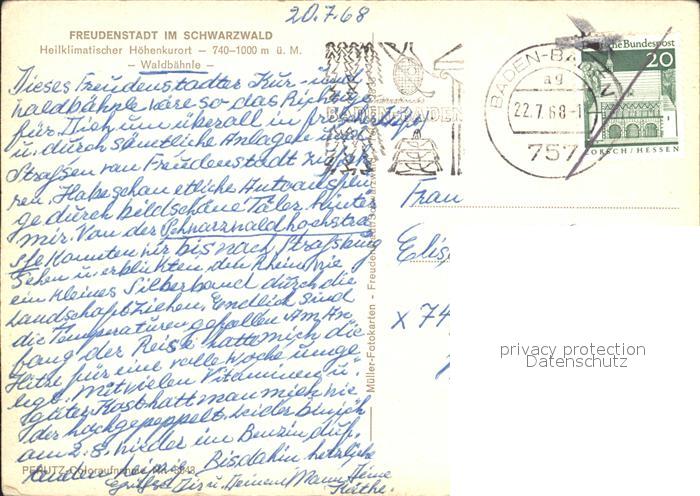 20.7.68
FREUDENSTADT IM SCHWARZWALD
Heilklimatischer Höhenkurort – 740–1000 m ü. M.
– Waldbähnle –
Dieses Freudenstadter Kur- und
Waldbähnle wäre so das Richtige
für Dich, um überall im
u. durch sämtliche Anlagen und
Strassen von Freudenstadt
ren. Habe schon etliche Autoausflü
ge durch bildschöne Täler hinter
mir. Von der Schwarzwaldhochstra
ße konnten wir bis nach Straßburg
sehen u. erblickten den Rhein wie
ein kleines Silberband durch die
Landschaft ziehen. Endlich sind
die Temperaturen gefallen. Am An
fang der Reise hatte mich die
Hitze für eine volle Woche umge
legt. Mit vielen Vitaminen u.
guter Kost hatt man mich wie
der hochgepeppelt. Leider bin ich
am 2.8. wieder im Benzinduft.
Bis dahin herzliche
Grüße Dir u. Deinem Mann Deine
Käthe.
PERUTZ-Coloraufnahme
Müller-Fotokarten – Freudenstadt/Schwarzwald
BADEN-BADEN
BADEN-BADEN
ag
22.7.68-1
757
Deutsche Bundespost
20
LORSCH/HESSEN
Frau
Elis
x 74
privacy protection
Datenschutz